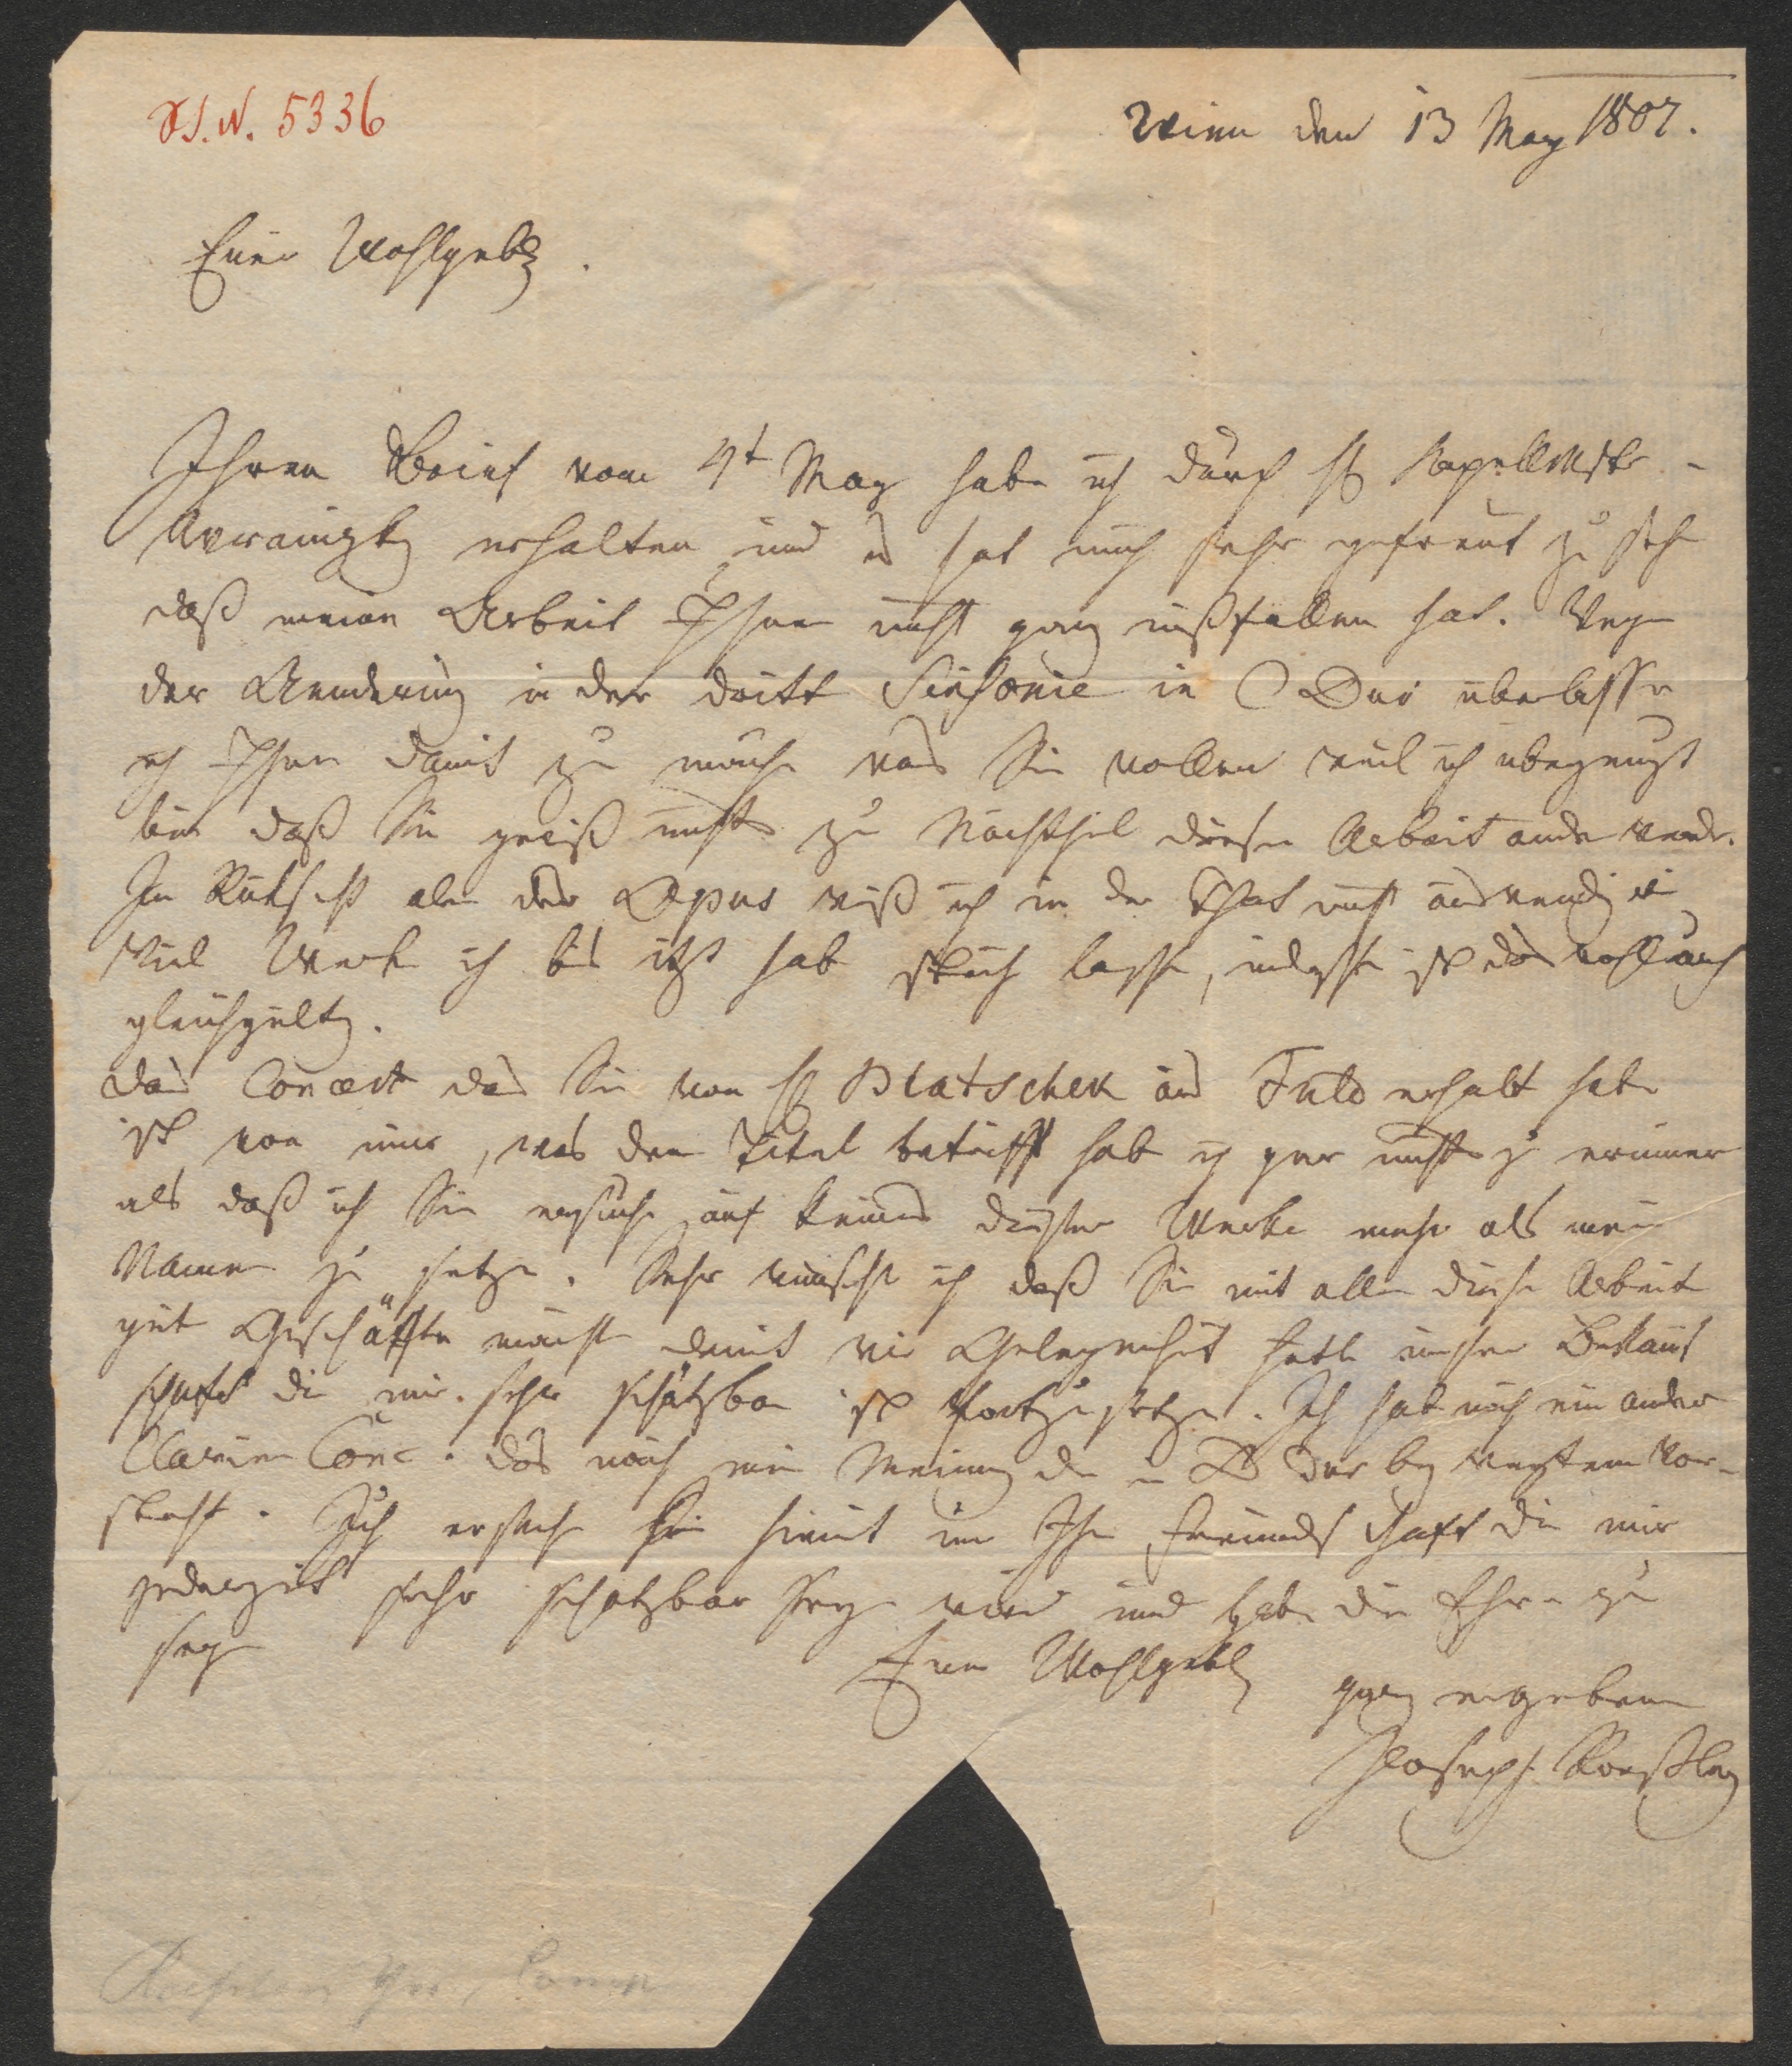 H.S.N. 5336
Wien den 13 May 1807.
Euer Wohlgeb
Ihren Brief vom 4t May habe ich durch H Kapellmstr
erhalten und es hat mich sehr gefreut zu sehn
daß meine Arbeit Ihnen nicht ganz mißfallen hat. Wegen
der Aenderung in der dritt Sinfonie in C Dur überlasse
ich Ihnen damit zu machen was Sie wollen weil ich überzeugt
bin daß Sie gewiß nichts zu Nachtheil dieser Arbeit
In Rüksicht aber des Opus weiß ich in der That nicht auswendig wie
viel Werke ich bis itzt hab stechen lassen, indessen ist das wohl auch
gleichgültig.
das Concert das Sie von H Blatschek aus Fuld erhalt habe
ist von mir, was den Titel betrifft hab ich gar nichts zu erinnern
als daß ich Sie ersuche auf keines dieser Werke mehr als mein
Namen zu setzen. Sehr wünsche ich daß Sie mit allen diesen Arbeit
gut Geschäffte machen damit wir Gelegenheit hätte unsere Bekannt
schaft die mir sehr schätzbar ist fortzusetzen. Ich hab noch ein anderes
Clarinn Conc. das nach mein Meinung dem in D Dur bey weytem vor-
steht. Ich ersuche Sie hiemit um Ihre Freundschaft die mir
jederzeit sehr schätzbar seyn wird und habe die Ehre zu
seyn
Euer Wohlgeb
ganz ergebener
Joseph Roeßler